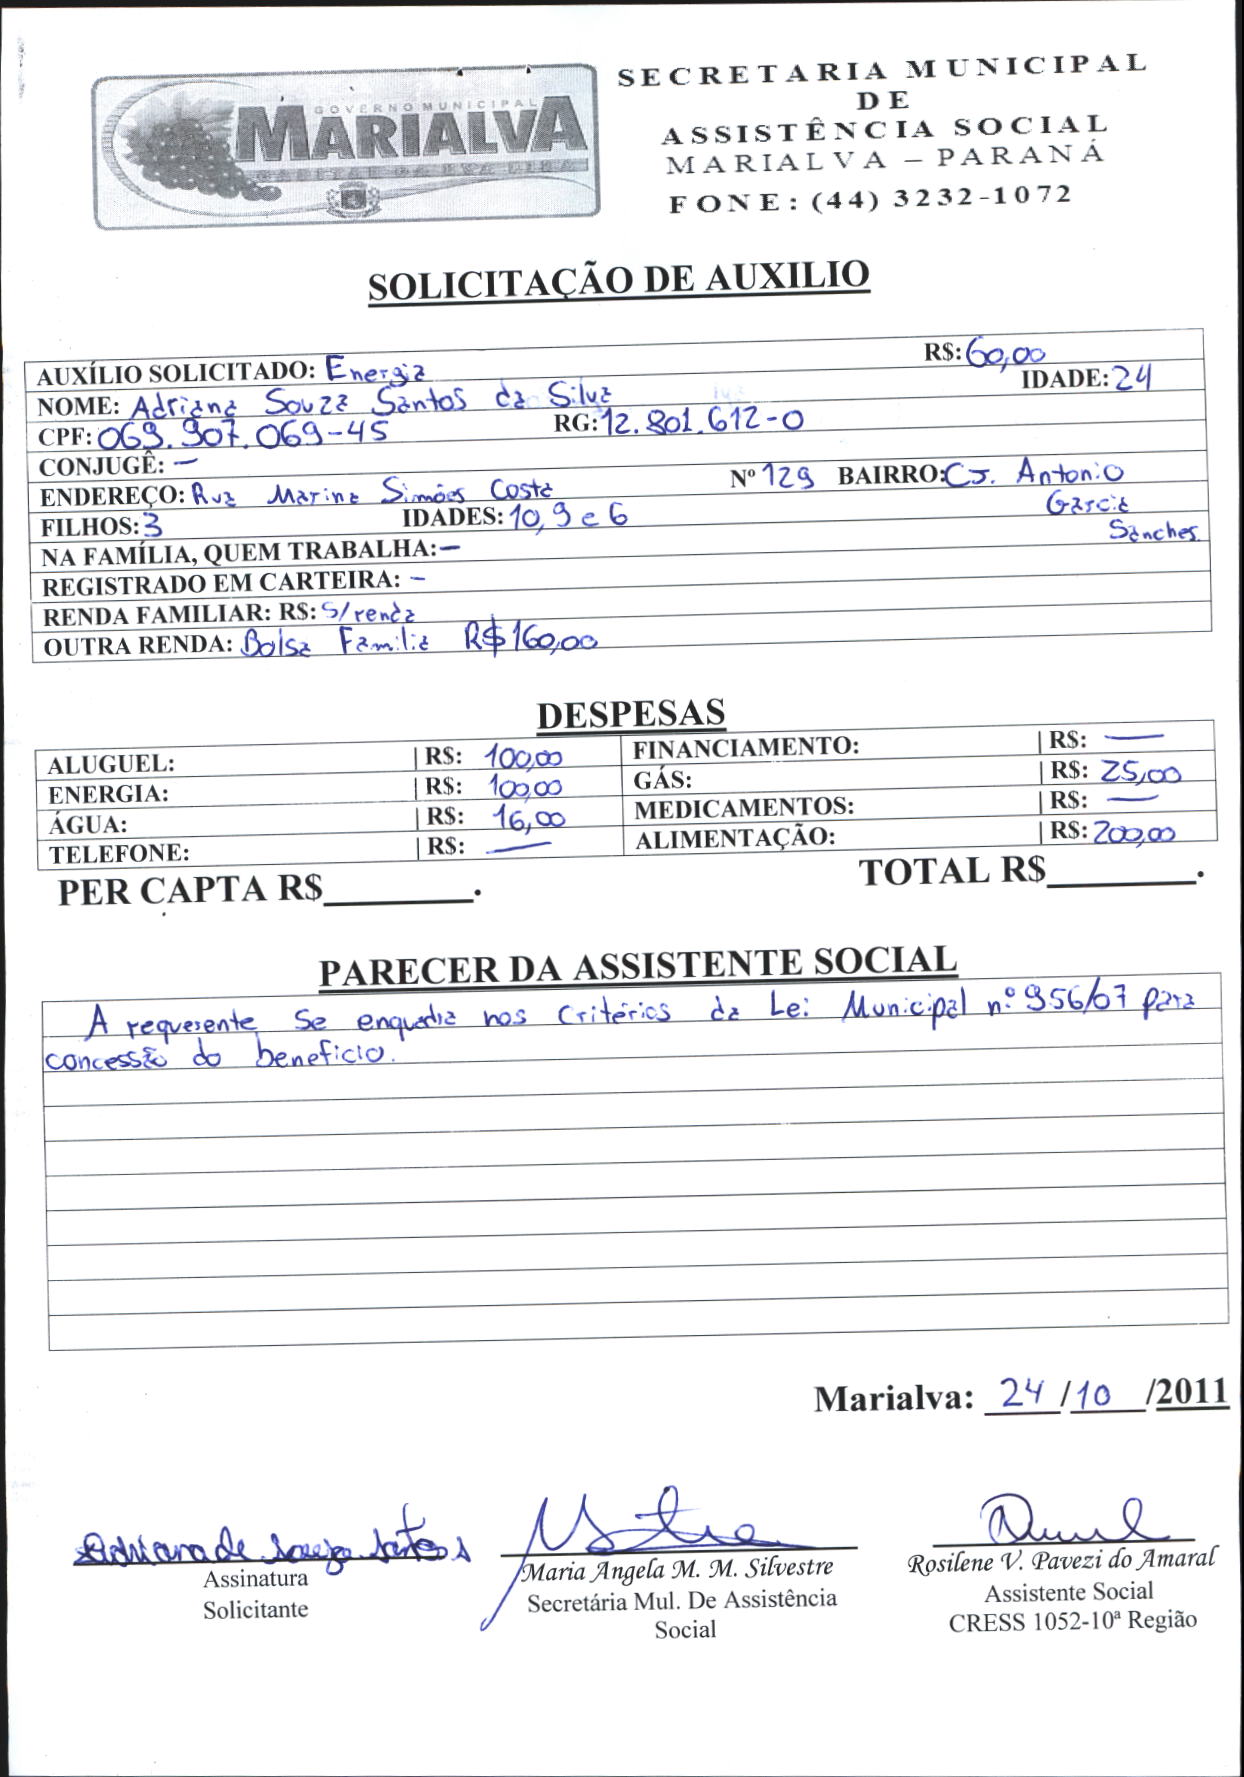 GOVERNO MUNICIPAL
MARIALVA
CAPITAL DA UVA FINA
SECRETARIA MUNICIPAL
DE
ASSISTÊNCIA SOCIAL
MARIALVA – PARANÁ
FONE: (44) 3232-1072
SOLICITAÇÃO DE AUXILIO
AUXÍLIO SOLICITADO: Energia R$: 60,00
NOME: Adriana Souza Santos da Silva IDADE: 24
CPF: 069.907.069-45 RG: 12.801.612-0
CONJUGÊ: –
ENDEREÇO: Rua Marina Simões Costa Nº 129 BAIRRO: CJ. Antonio
Garcia
Sanches
FILHOS: 3 IDADES: 10, 9 e 6
NA FAMÍLIA, QUEM TRABALHA: –
REGISTRADO EM CARTEIRA: –
RENDA FAMILIAR: R$: S/renda
OUTRA RENDA: Bolsa Familia R$ 160,00
DESPESAS
ALUGUEL: | R$: 100,00 FINANCIAMENTO: | R$: —
ENERGIA: | R$: 100,00 GÁS: | R$: 25,00
ÁGUA: | R$: 16,00 MEDICAMENTOS: | R$: —
TELEFONE: | R$: — ALIMENTAÇÃO: | R$: 200,00
PER CAPTA R$________. TOTAL R$________.
PARECER DA ASSISTENTE SOCIAL
A requerente se enquadra nos critérios da Lei Municipal nº 956/07 para
concessão do beneficio.
Marialva: 24/10/2011
Adriana de Souza Santos
Assinatura
Solicitante
Maria Angela M. M. Silvestre
Secretária Mul. De Assistência
Social
Rosilene V. Pavezi do Amaral
Assistente Social
CRESS 1052-10ª Região